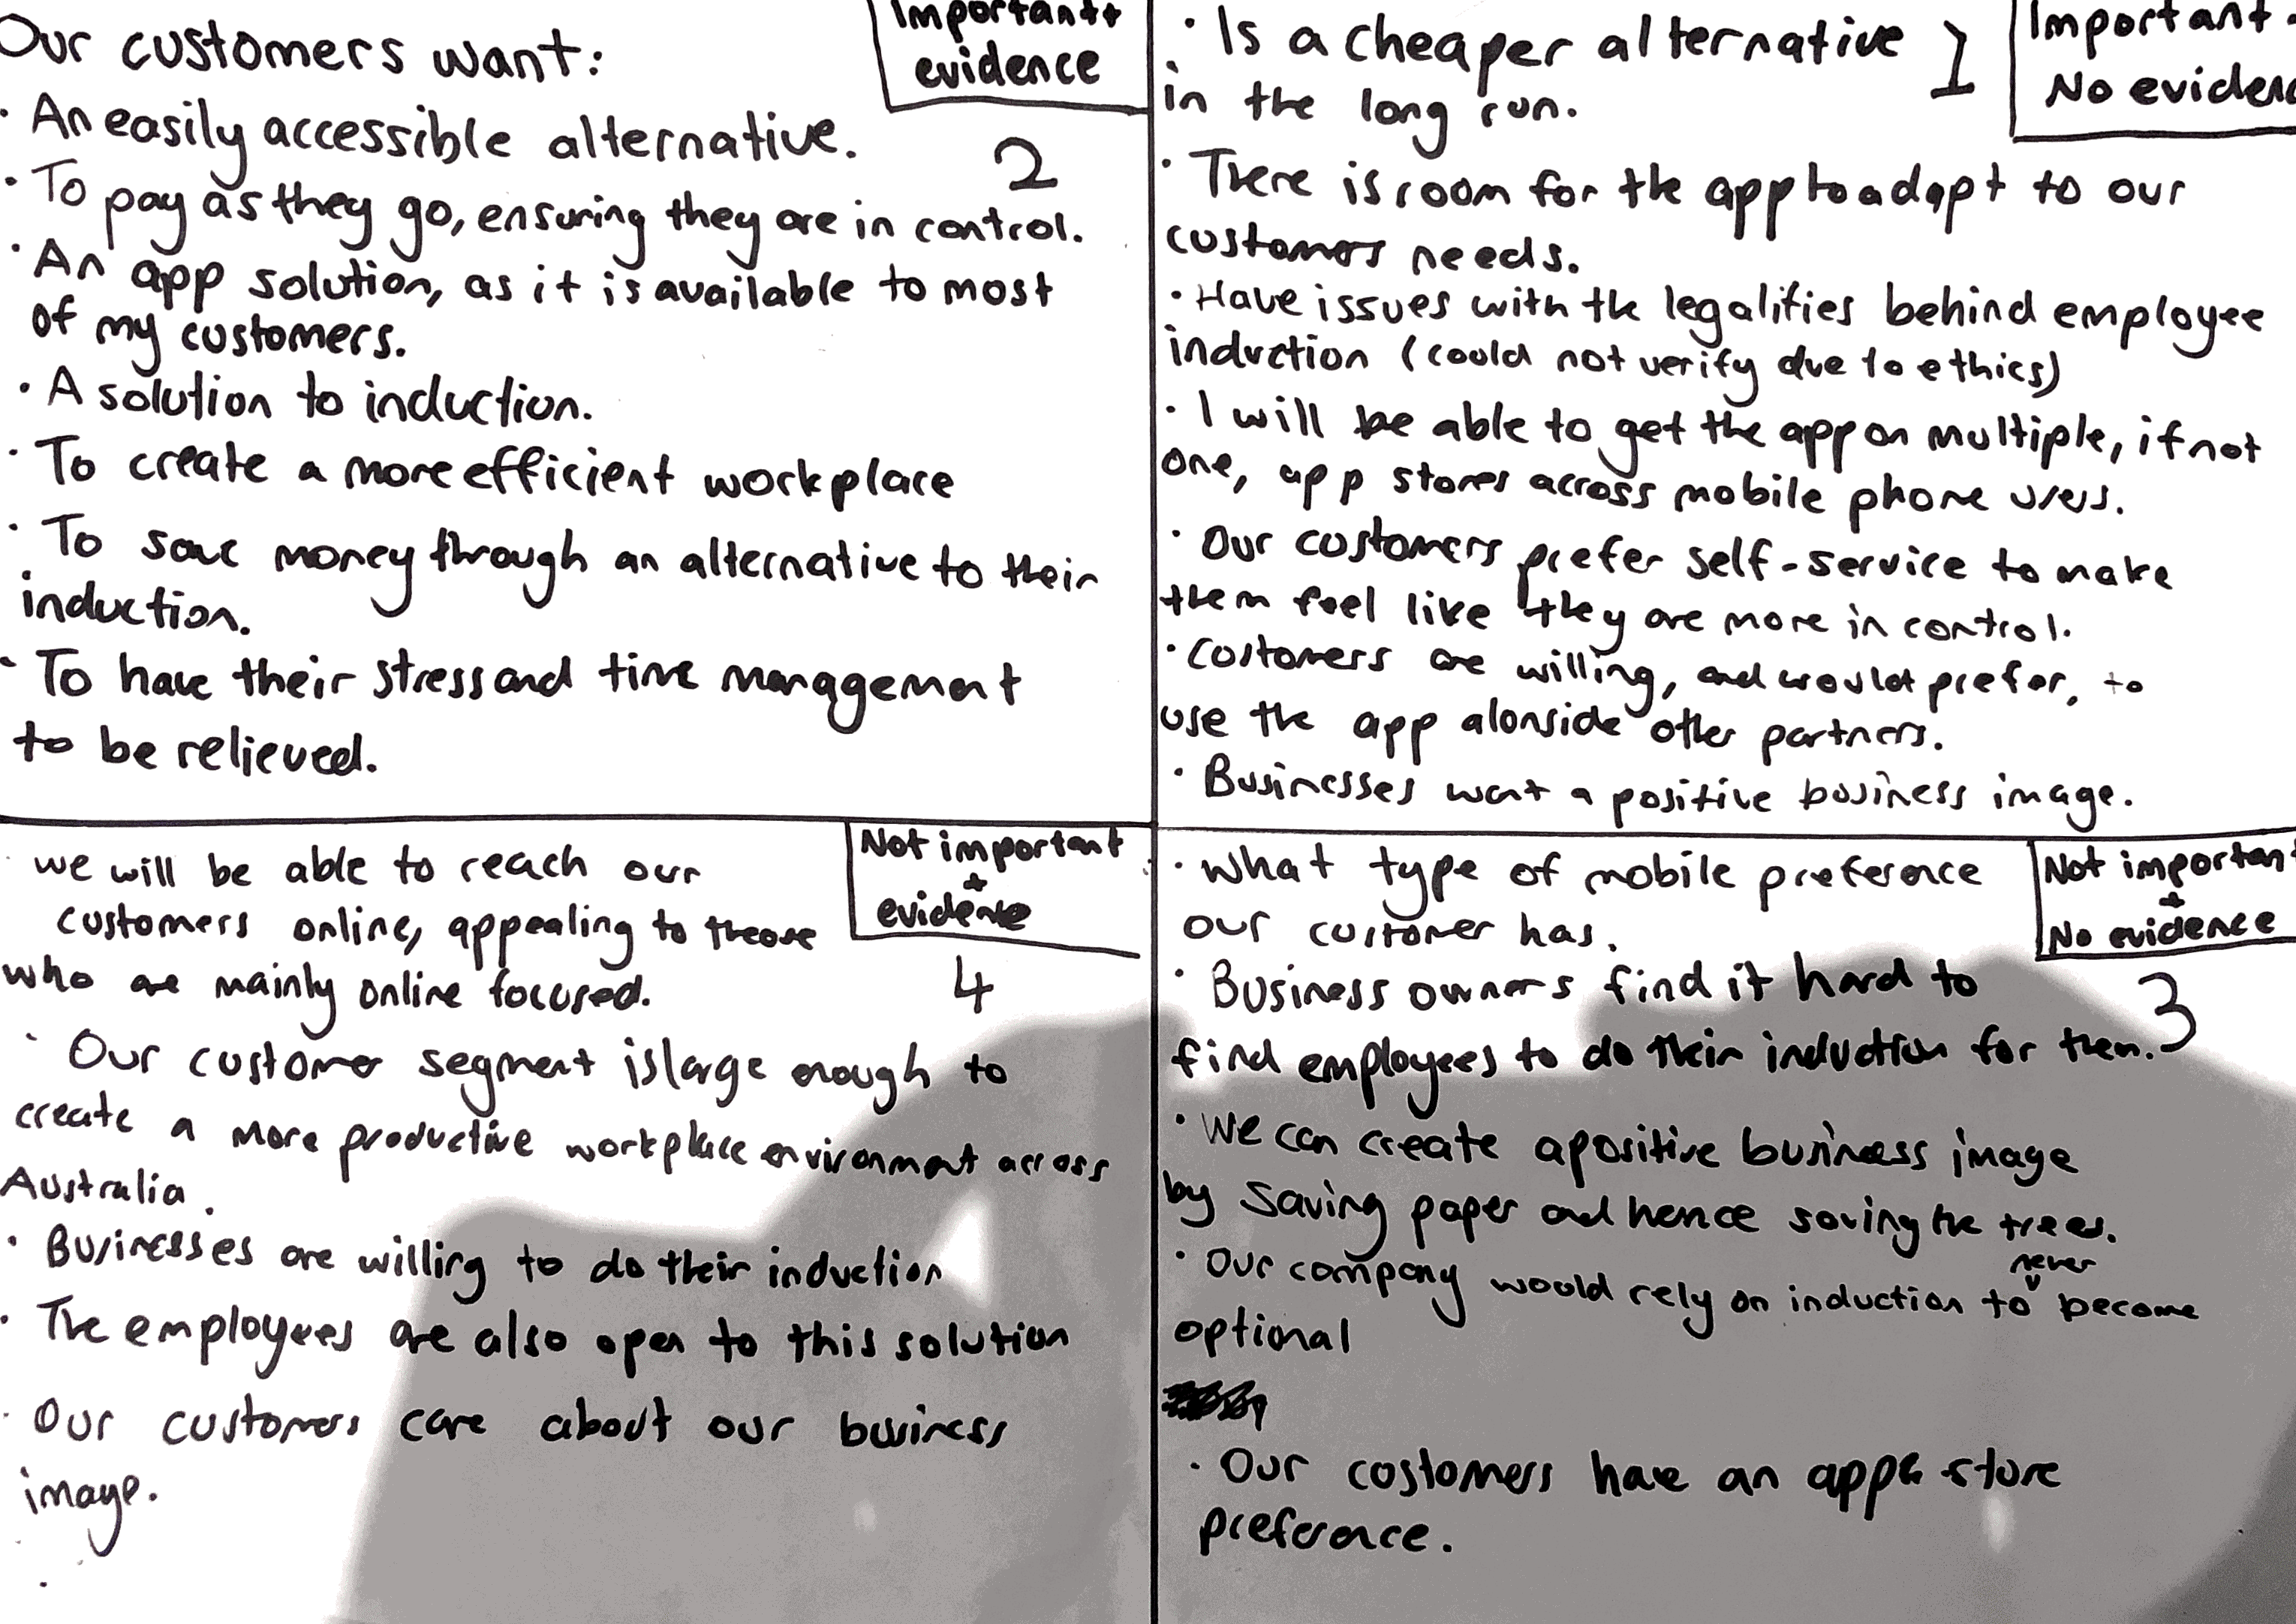 Our customers want:
Important +
evidence
· An easily accessible alternative.
2
· To pay as they go, ensuring they are in control.
· An app solution, as it is available to most
of my customers.
· A solution to induction.
· To create a more efficient workplace
· To save money through an alternative to their
induction.
· To have their stress and time management
to be relieved.
· Is a cheaper alternative
1
Important
No eviden
in the long run.
· There is room for the app to adapt to our
customers needs.
· Have issues with the legalities behind employee
induction (could not verify due to ethics)
· I will be able to get the app on multiple, if not
one, app stores across mobile phone users.
· Our customers prefer self-service to make
them feel like they are more in control.
· Costomers are willing, and would prefer, to
use the app alonside other partners.
· Businesses want a positive business image.
· we will be able to reach our
Not important
+
evidence
customers online, appealing to
who are mainly online focused.
4
· Our customer segment is large enough to
create a more productive workplace environment across
Australia.
· Businesses are willing to do their induction
· The employees are also open to this solution
· Our customers care about our business
image.
· What type of mobile preference
Not important
+
No evidence
our customer has.
· Business owners find it hard to
3
find employees to do their induction for them.
· We can create a positive business image
by saving paper and hence saving the trees.
· Our company would rely on induction to never become
optional
· Our costomers have an store
preference.